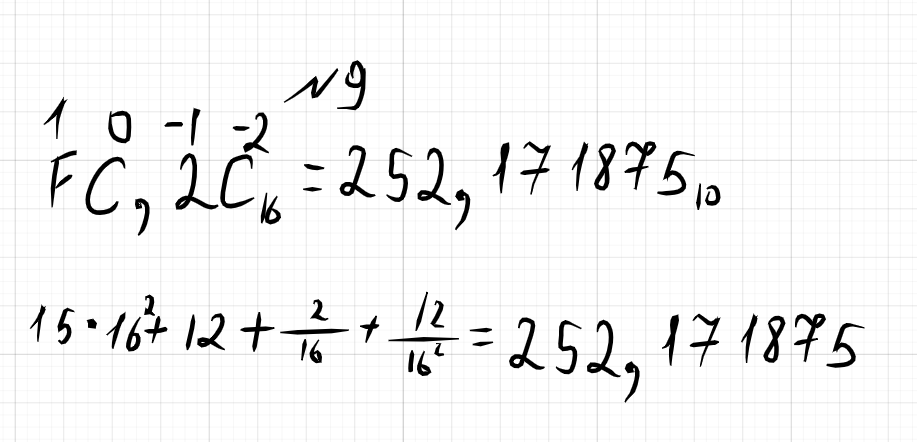 №9
1 0 -1 -2
FC,2C₁₆ = 252,171875₁₀
15·16²+ 12 + 2/16 + 12/16² = 252,171875